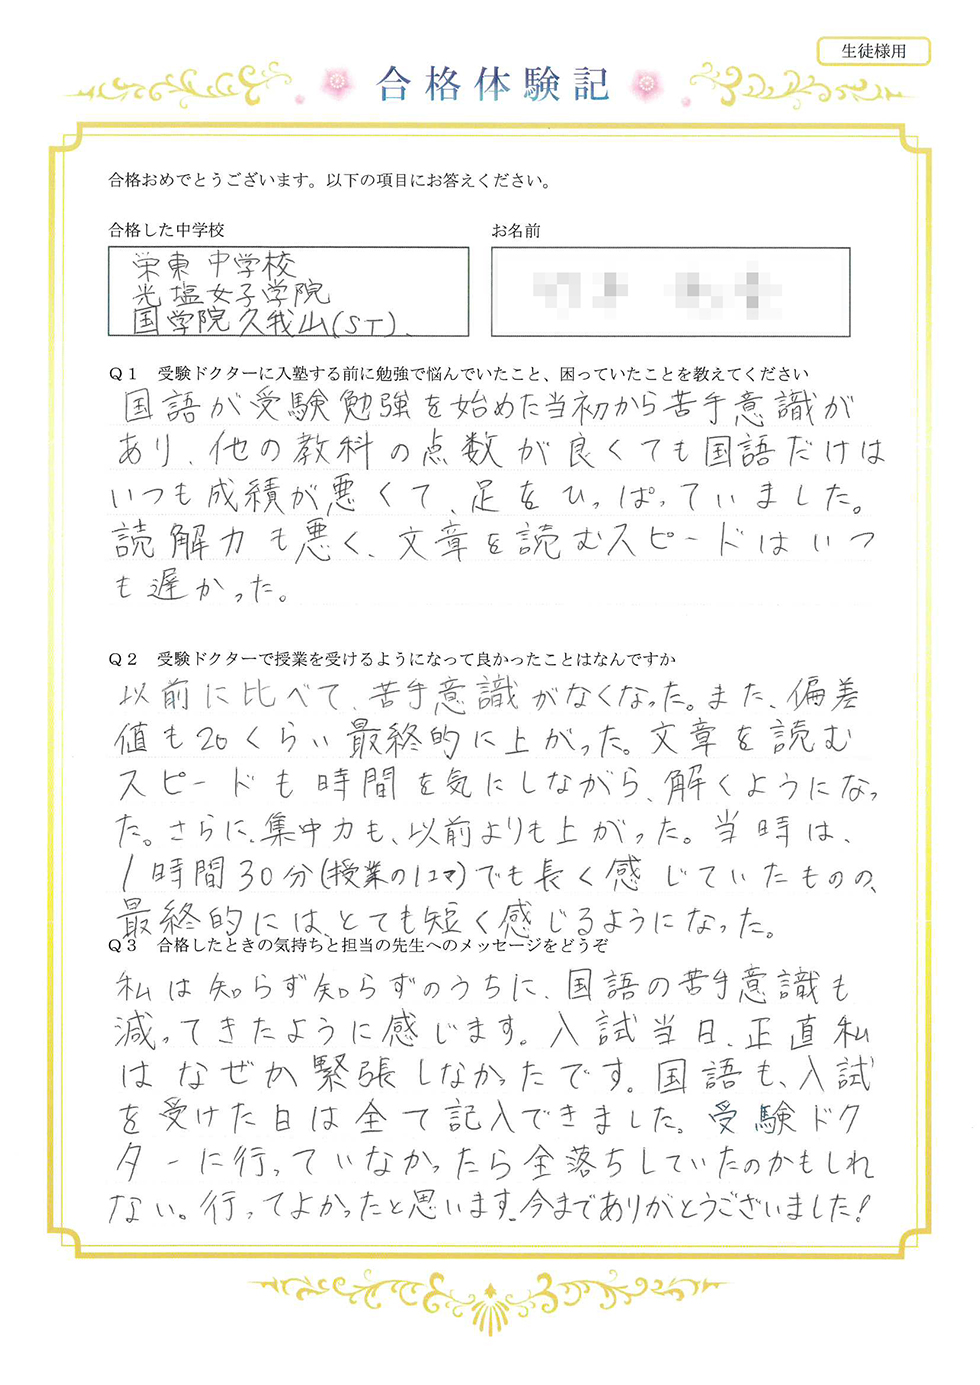 生徒様用
合格体験記
合格おめでとうございます。以下の項目にお答えください。
合格した中学校
お名前
栄東 中学校
光塩女子学院
国学院久我山(ST).
Q1 受験ドクターに入塾する前に勉強で悩んでいたこと、困っていたことを教えてください
国語が受験勉強を始めた当初から苦手意識が
あり、他の教科の点数が良くても国語だけは
いつも成績が悪くて、足をひっぱっていました。
読解力も悪く、文章を読むスピードはいつ
も遅かった。
Q2 受験ドクターで授業を受けるようになって良かったことはなんですか
以前に比べて、苦手意識がなくなった。また、偏差
値も20くらい最終的に上がった。文章を読む
スピードも時間を気にしながら、解くようになっ
た。さらに、集中力も、以前よりも上がった。当時は、
1時間30分(授業の1コマ)でも長く感じていたものの、
最終的には、とても短く感じるようになった。
Q3 合格したときの気持ちと担当の先生へのメッセージをどうぞ
私は知らず知らずのうちに、国語の苦手意識も
減ってきたように感じます。入試当日、正直私
はなぜか緊張しなかったです。国語も、入試
を受けた日は全て記入できました。受験ドク
ターに行っていなかったら全落ちしていたのかもしれ
ない。行ってよかったと思います。今までありがとうございました!